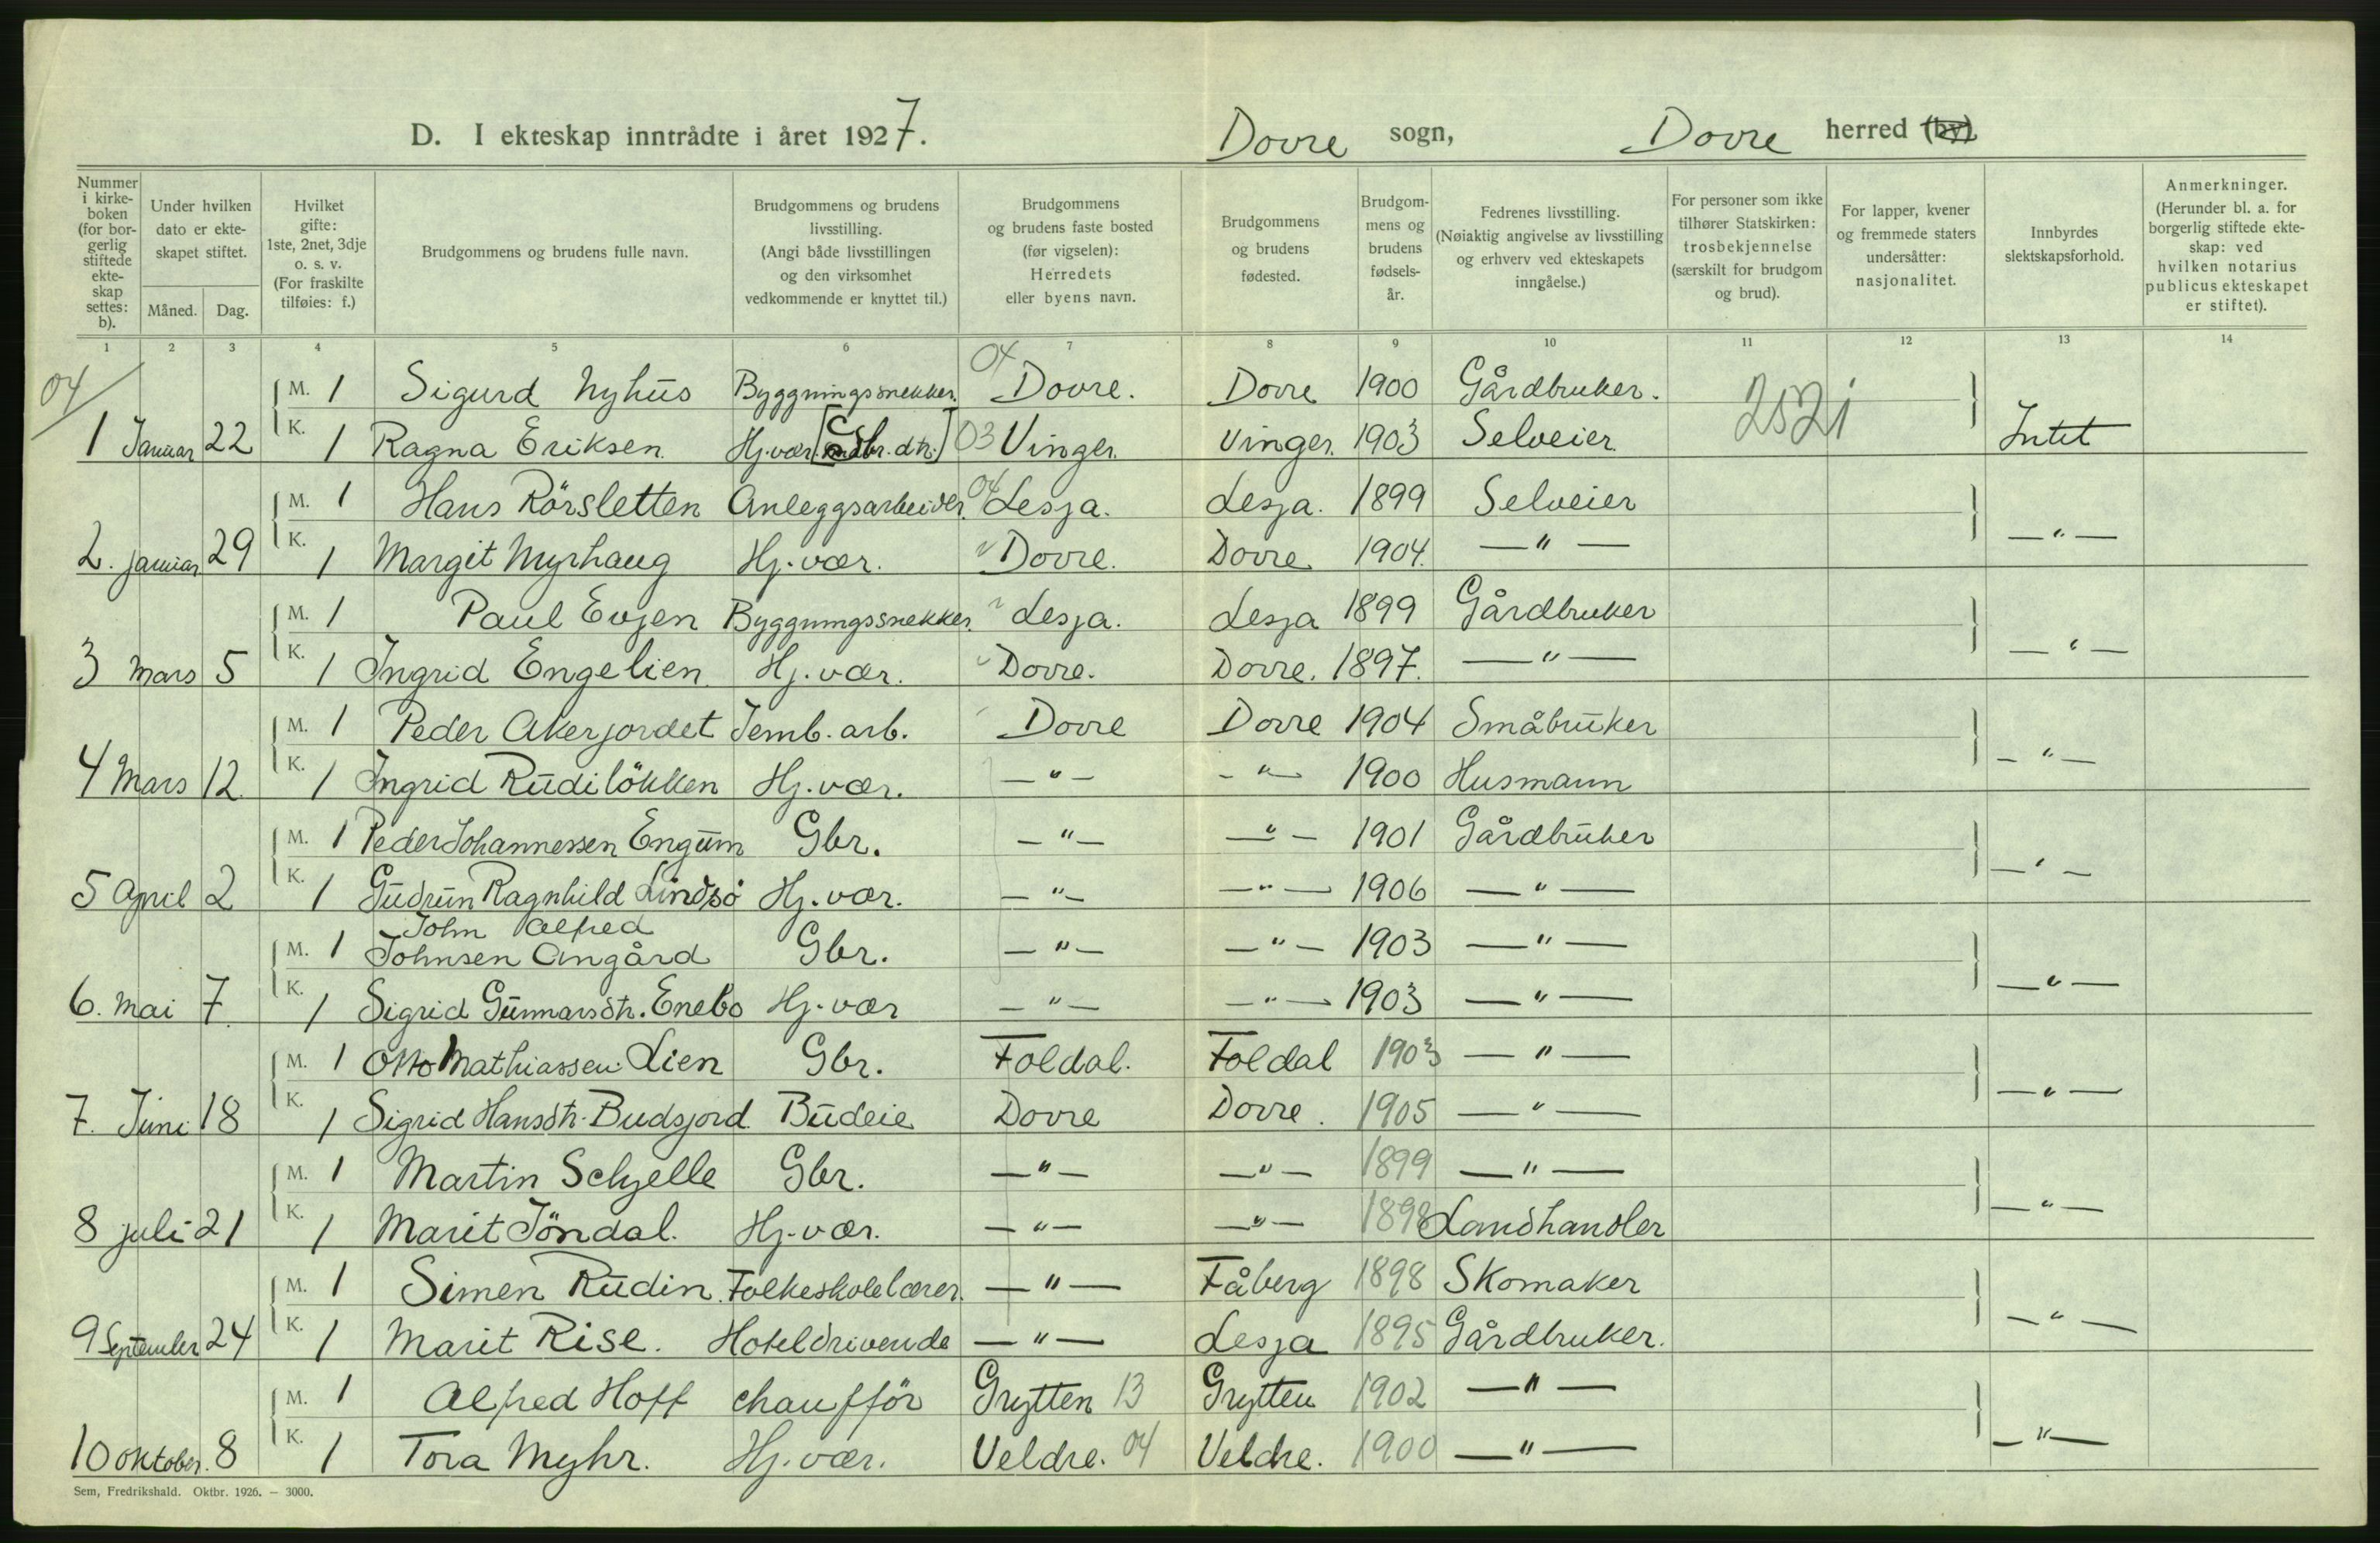 D. I ekteskap inntrådte i året 1927. Dovre sogn, Dovre herred (by)
Nummer i kirke-boken (for bor-gerlig stiftede ekte-skap settes: b).
Under hvilken dato er ekte-skapet stiftet.
Måned. Dag.
Hvilket gifte: 1ste, 2net, 3dje o. s. v. (For fraskilte tilføies: f.)
Brudgommens og brudens fulle navn.
Brudgommens og brudens livsstilling. (Angi både livsstillingen og den virksomhet vedkommende er knyttet til.)
Brudgommens og brudens faste bosted (før vigselen): Herredets eller byens navn.
Brudgommens og brudens fødested.
Brudgom-mens og brudens fødsels-år.
Fedrenes livsstilling. (Nøiaktig angivelse av livsstilling og erhverv ved ekteskapets inngåelse.)
For personer som ikke tilhører Statskirken: trosbekjennelse (særskilt for brudgom og brud).
For lapper, kvener og fremmede staters undersåtter: nasjonalitet.
Innbyrdes slektskapsforhold.
Anmerkninger. (Herunder bl. a. for borgerlig stiftede ekte-skap: ved hvilken notarius publicus ekteskapet er stiftet).
1 2 3 4 5 6 7 8 9 10 11 12 13 14
04 M. 1 Sigurd Nyhus Byggningssnekker. 04 Dovre. Dovre 1900 Gårdbruker. 252i
1 Januar 22 K. 1 Ragna Eriksen. Hj.vær. [Gbr. dtr.] 03 Vinger. Vinger. 1903 Selveier. Intet
M. 1 Hans Rörsletten Anleggsarbeider. 04 Lesja. Lesja. 1899 Selveier
2. januar 29 K. 1 Margit Myrhaug Hj.vær. " Dovre. Dovre 1904. —"— —"—
M. 1 Paul Evjen Byggningssnekker. " Lesja. Lesja 1899 Gårdbruker
3 Mars 5 K. 1 Ingrid Engelien Hj.vær. " Dovre. Dovre. 1897. —"— —"—
M. 1 Peder Akerjordet Jernb. arb. Dovre Dovre 1904 Småbruker
4 Mars 12. K. 1 Ingrid Rudilökken Hj.vær. —"— —"— 1900 Husmann —"—
M. 1 Peder Johannessen Engum Gbr. —"— —"— 1901 Gårdbruker
5 April 2 K. 1 Gudrun Ragnhild Lindsö Hj.vær. —"— —"— 1906 —"— —"—
John Alfred
M. 1 Johnsen Angård Gbr. —"— —"— 1903 —"—
6. Mai 7. K. 1 Sigrid Gunnarsdtr. Enebo Hj.vær —"— —"— 1903 —"— —"—
M. 1 Otto Mathiassen Lien Gbr. Foldal. Foldal 1903 —"—
7. Juni 18 K. 1 Sigrid Hansdtr. Budsjord. Budeie Dovre Dovre. 1905 —"— —"—
M. 1 Martin Schjelle Gbr. —"— —"— 1899 —"—
8 juli 21 K. 1 Marit Jöndal. Hj.vær. —"— —"— 1898 Landhandler —"—
M. 1 Simen Rudin. Folkeskolelærer. —"— Fåberg 1898 Skomaker
9 September 24 K. 1 Marit Rise. Hoteldrivende —"— Lesja 1895 Gårdbruker. —"—
M. 1 Alfred Hoff chaufför Grytten 13 Grytten 1902 —"—
10 oktober. 8 K. 1 Tora Myhr. Hj.vær. Veldre. 04 Veldre. 1900 —"— —"—
Sem, Fredrikshald. Oktbr. 1926. — 3000.